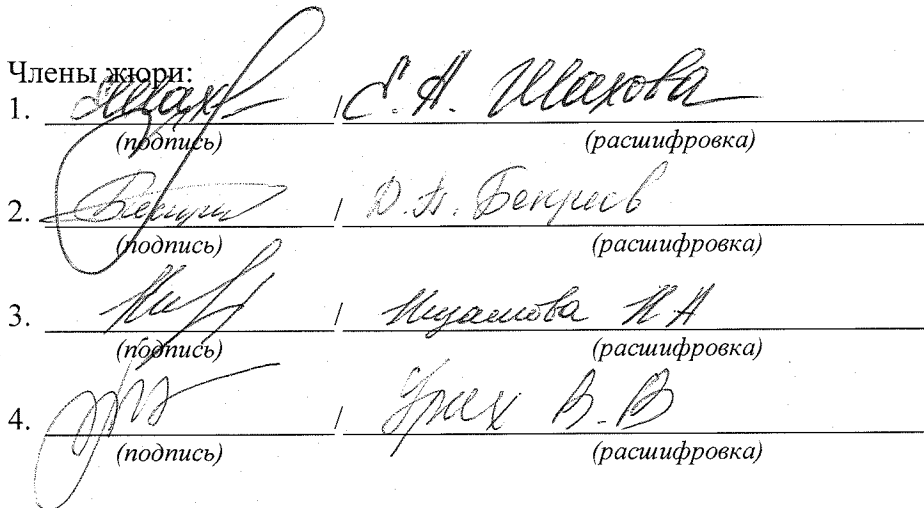 Члены жюри:
1. / Е. А. Шахова
(подпись) (расшифровка)
2. / Д. П. Бекреев
(подпись) (расшифровка)
3. / Н А
(подпись) (расшифровка)
4. / В. В
(подпись) (расшифровка)